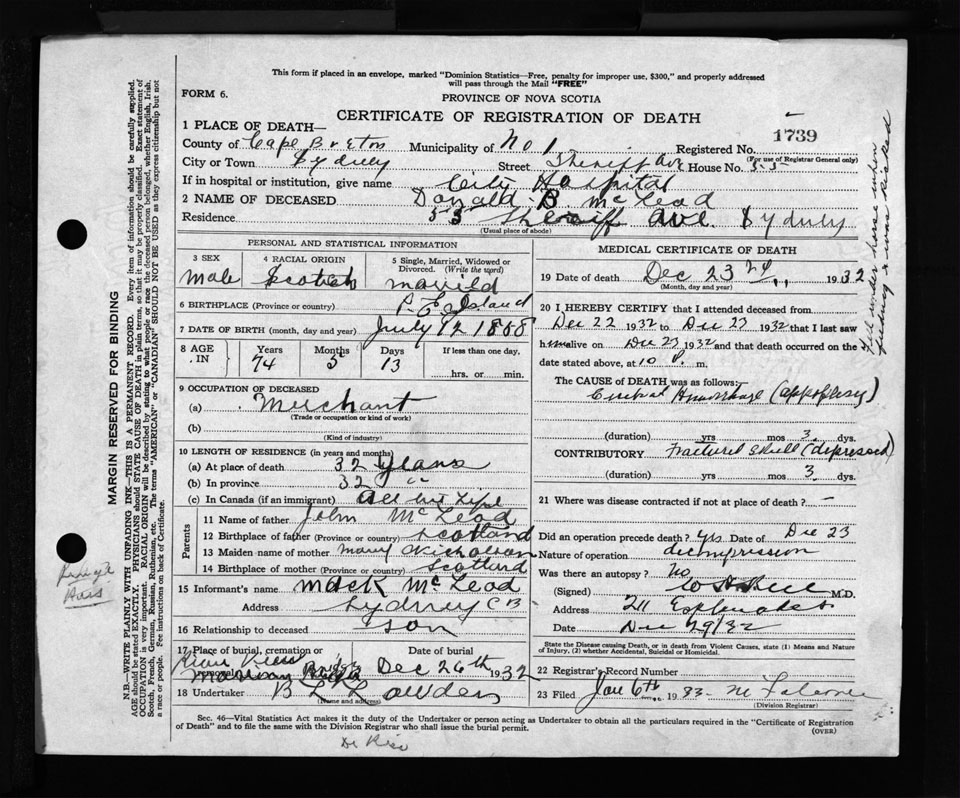 This form if placed in an envelope, marked "Dominion Statistics—Free, penalty for improper use, $300," and properly addressed
will pass through the Mail "FREE"
FORM 6.
PROVINCE OF NOVA SCOTIA
CERTIFICATE OF REGISTRATION OF DEATH
1739
1 PLACE OF DEATH—
County of Cape Breton Municipality of No 1 Registered No.
(For use of Registrar General only)
City or Town Sydney Street Sheriff Ave House No. 53
If in hospital or institution, give name City Hospital
2 NAME OF DECEASED Donald B McLeod
Residence 53 Sheriff Ave. Sydney
(Usual place of abode)
PERSONAL AND STATISTICAL INFORMATION
3 SEX 4 RACIAL ORIGIN 5 Single, Married, Widowed or
Divorced. (Write the word)
Male Scotch married
6 BIRTHPLACE (Province or country) P. E. Island
7 DATE OF BIRTH (month, day and year) July 12 1858
8 AGE IN Years Months Days If less than one day.
74 5 13 hrs. or min.
9 OCCUPATION OF DECEASED
(a) Merchant
(Trade or occupation or kind of work)
(b)
(Kind of industry)
10 LENGTH OF RESIDENCE (in years and months)
(a) At place of death 32 years
(b) In province 32 "
(c) In Canada (if an immigrant) All his Life
Parents
11 Name of father John McLeod
12 Birthplace of father (Province or country) Scotland
13 Maiden name of mother Mary Nicholson
14 Birthplace of mother (Province or country) Scotland
15 Informant's name Mack McLeod
Address Sydney C B
16 Relationship to deceased son
17 Place of burial, cremation or Date of burial
Dec 26th 1932
18 Undertaker
(Name and address)
MEDICAL CERTIFICATE OF DEATH
19 Date of death Dec 23rd 1932
(Month, day and year)
20 I HEREBY CERTIFY that I attended deceased from
Dec 22 1932 to Dec 23 1932 that I last saw
him alive on Dec 23 1932 and that death occurred on the
date stated above, at 10 P. m.
The CAUSE OF DEATH was as follows:
Cerebral Hemorrhage (appoplexy)
(duration) yrs mos 3 dys.
CONTRIBUTORY Fractured Skull (depressed)
(duration) yrs mos 3 dys.
21 Where was disease contracted if not at place of death? —
Did an operation precede death? Yes Date of Dec 23
Nature of operation decompression
Was there an autopsy? No
(Signed) M.D.
Address 211 Esplanade
Date Dec 29/32
State the Disease causing Death, or in death from Violent Causes, state (1) Means and Nature
of Injury, (2) whether Accidental, Suicidal or Homicidal.
22 Registrar's Record Number
23 Filed Jan 6th 1933
(Division Registrar)
Sec. 46—Vital Statistics Act makes it the duty of the Undertaker or person acting as Undertaker to obtain all the particulars required in the "Certificate of Registration
of Death" and to file the same with the Division Registrar who shall issue the burial permit.
(OVER)
MARGIN RESERVED FOR BINDING
N.B.—WRITE PLAINLY WITH UNFADING INK—THIS IS A PERMANENT RECORD. Every item of information should be carefully supplied.
AGE should be stated EXACTLY. PHYSICIANS should STATE CAUSE OF DEATH in plain terms, so that it may be properly classified. Exact statement of
OCCUPATION is very important. RACIAL ORIGIN will be described by stating to what people or race the deceased person belonged, whether English, Irish,
Scotch, French, German, Russian, Ruthenian, etc. The terms "AMERICAN" or "CANADIAN" SHOULD NOT BE USED as they express citizenship but not
a race or people. Fee instructions on back of Certificate.
Fell under horse when